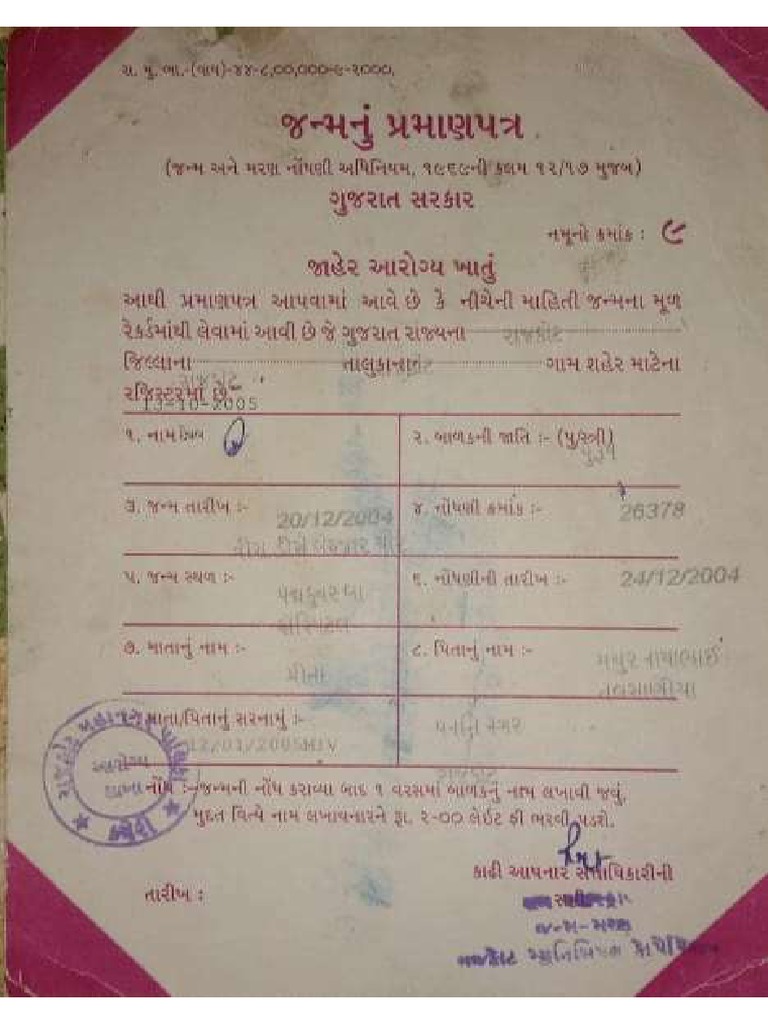 સ. મુ. ભા.-(વાય)-૪૪-૮,૦૦,૦૦૦-૯-૨૦૦૦,
જન્મનું પ્રમાણપત્ર
(જન્મ અને મરણ નોંધણી અધિનિયમ, ૧૯૬૯ની કલમ ૧૨/૧૭ મુજબ)
ગુજરાત સરકાર
નમૂનો ક્રમાંક : ૯
જાહેર આરોગ્ય ખાતું
આથી પ્રમાણપત્ર આપવામાં આવે છે કે નીચેની માહિતી જન્મના મૂળ
રેકર્ડમાંથી લેવામાં આવી છે જે ગુજરાત રાજ્યના રાજકોટ
જિલ્લાના તાલુકાના ગામ શહેર માટેના
રાજકોટ
રજિસ્ટરમાં છે.
13-10-2005
૧. નામ
૨. બાળકની જાતિ :- (પુ/સ્ત્રી)
પુરૂષ
૩. જન્મ તારીખ :- 20/12/2004
૪. નોંધણી ક્રમાંક :- 26378
૫. જન્મ સ્થળ :-
પદ્મકુવરબા
હોસ્પિટલ
૬. નોંધણીની તારીખ :- 24/12/2004
૭. માતાનું નામ :-
મીતા
૮. પિતાનું નામ :-
માતા/પિતાનું સરનામું :-
12/01/2005MIV
નગર
રાજકોટ
નોંધ :-જન્મની નોંધ કરાવ્યા બાદ ૧ વરસમાં બાળકનું નામ લખાવી જવું,
મુદત વિત્યે નામ લખાવનારને રૂા. ૨-૦૦ લેઈટ ફી ભરવી પડશે.
આરોગ્ય
શાખા
કાઢી આપનાર સત્તાધિકારીની
તારીખ :
જન્મ-મરણ
રાજકોટ મ્યુનિસિપલ કોર્પોરેશન